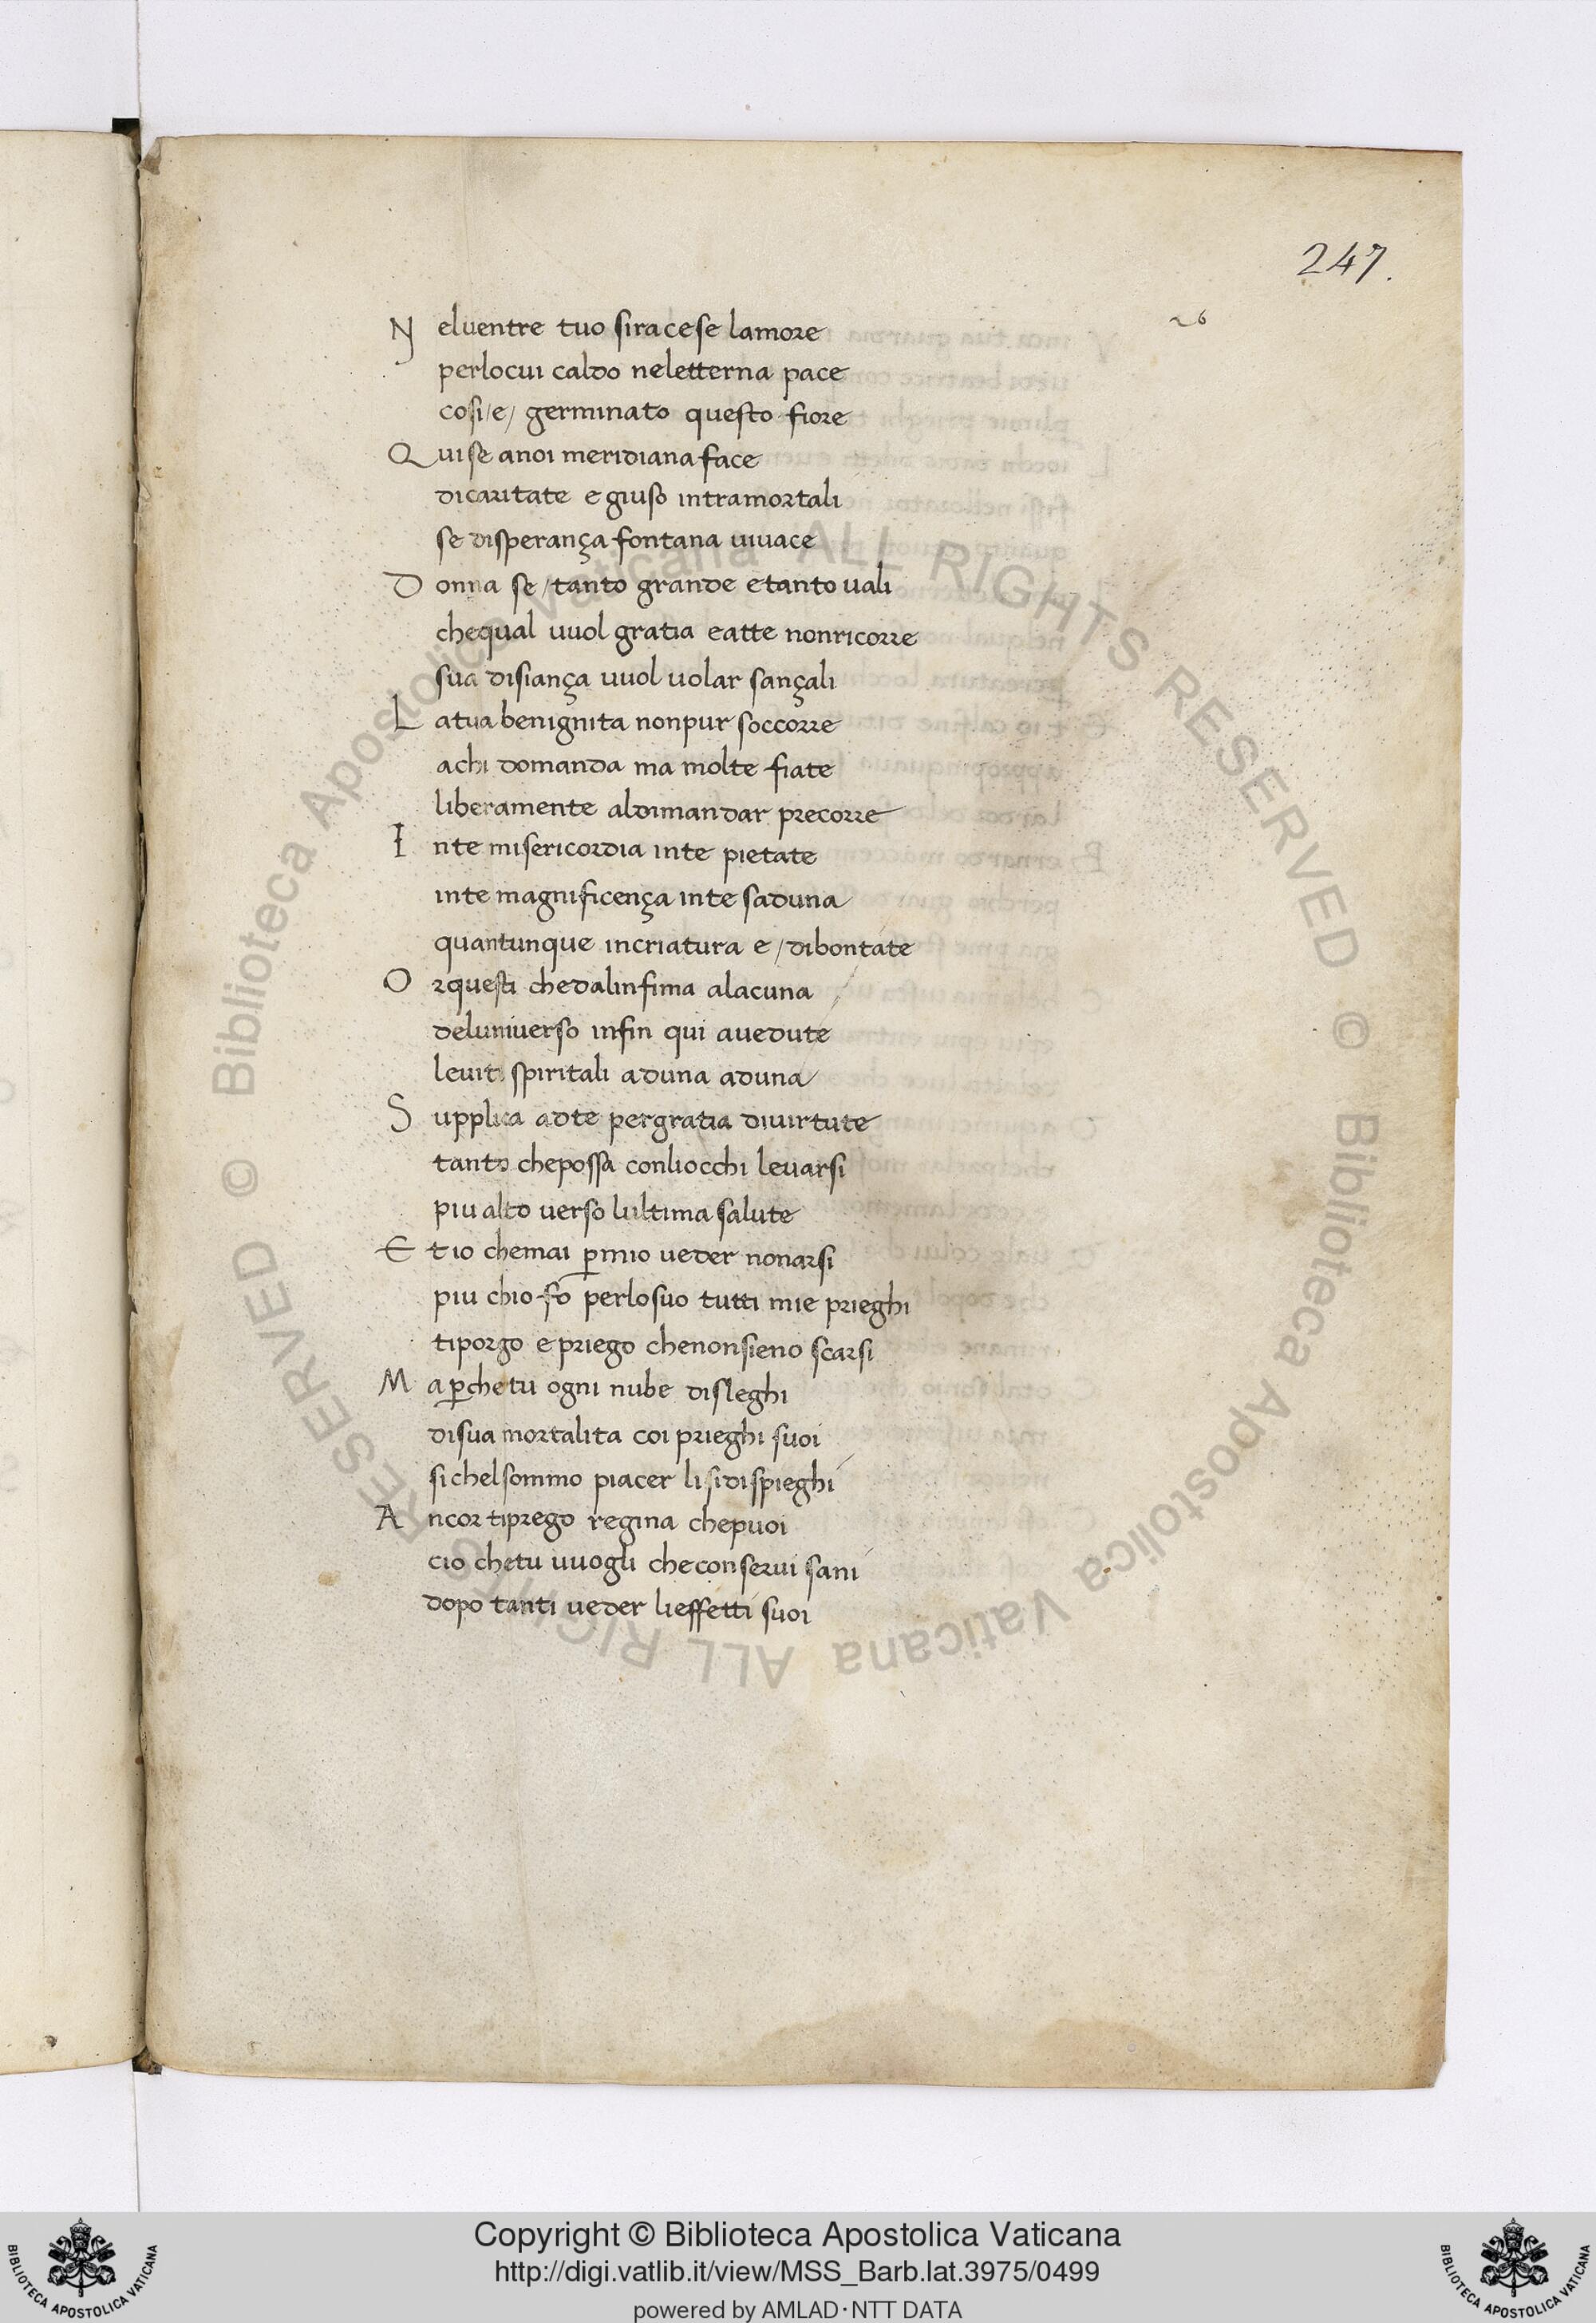 247.
26
N eluentre tuo siracese lamore
perlocui caldo neletterna pace
cosi/e/ germinato questo fiore
Q uise anoi meridiana face
dicaritate e giuso intramortali
se disperança fontana uiuace
D onna se/tanto grande etanto uali
chequal uuol gratia eatte nonricorre
sua disiança uuol uolar sançali
L atua benignita nonpur soccorre
achi domanda ma molte fiate
liberamente aldimandar precorre
I nte misericordia inte pietate
inte magnificença inte saduna
quantunque incriatura e/dibontate
O rquesti chedalinfima alacuna
deluniuerso infin qui auedute
leuite spiritali aduna aduna
S upplica adte pergratia diuirtute
tanto chepossa conliocchi leuarsi
piu alto uerso lultima salute
E t io chemai ꝑmio ueder nonarsi
piu chio fo perlosuo tutti mie prieghi
tiporgo e priego chenonsieno scarsi
M aꝑchetu ogni nube disleghi
disua mortalita coi prieghi suoi
sichelsommo piacer lisidispieghi
A ncor tiprego regina chepuoi
cio chetu uuogli checonserui sani
dopo tanti ueder lieffetti suoi
© Biblioteca Apostolica Vaticana ALL RIGHTS RESERVED
© Biblioteca Apostolica Vaticana ALL RIGHTS RESERVED
BIBLIOTECA APOSTOLICA VATICANA
Copyright © Biblioteca Apostolica Vaticana
http://digi.vatlib.it/view/MSS_Barb.lat.3975/0499
powered by AMLAD·NTT DATA
BIBLIOTECA APOSTOLICA VATICANA